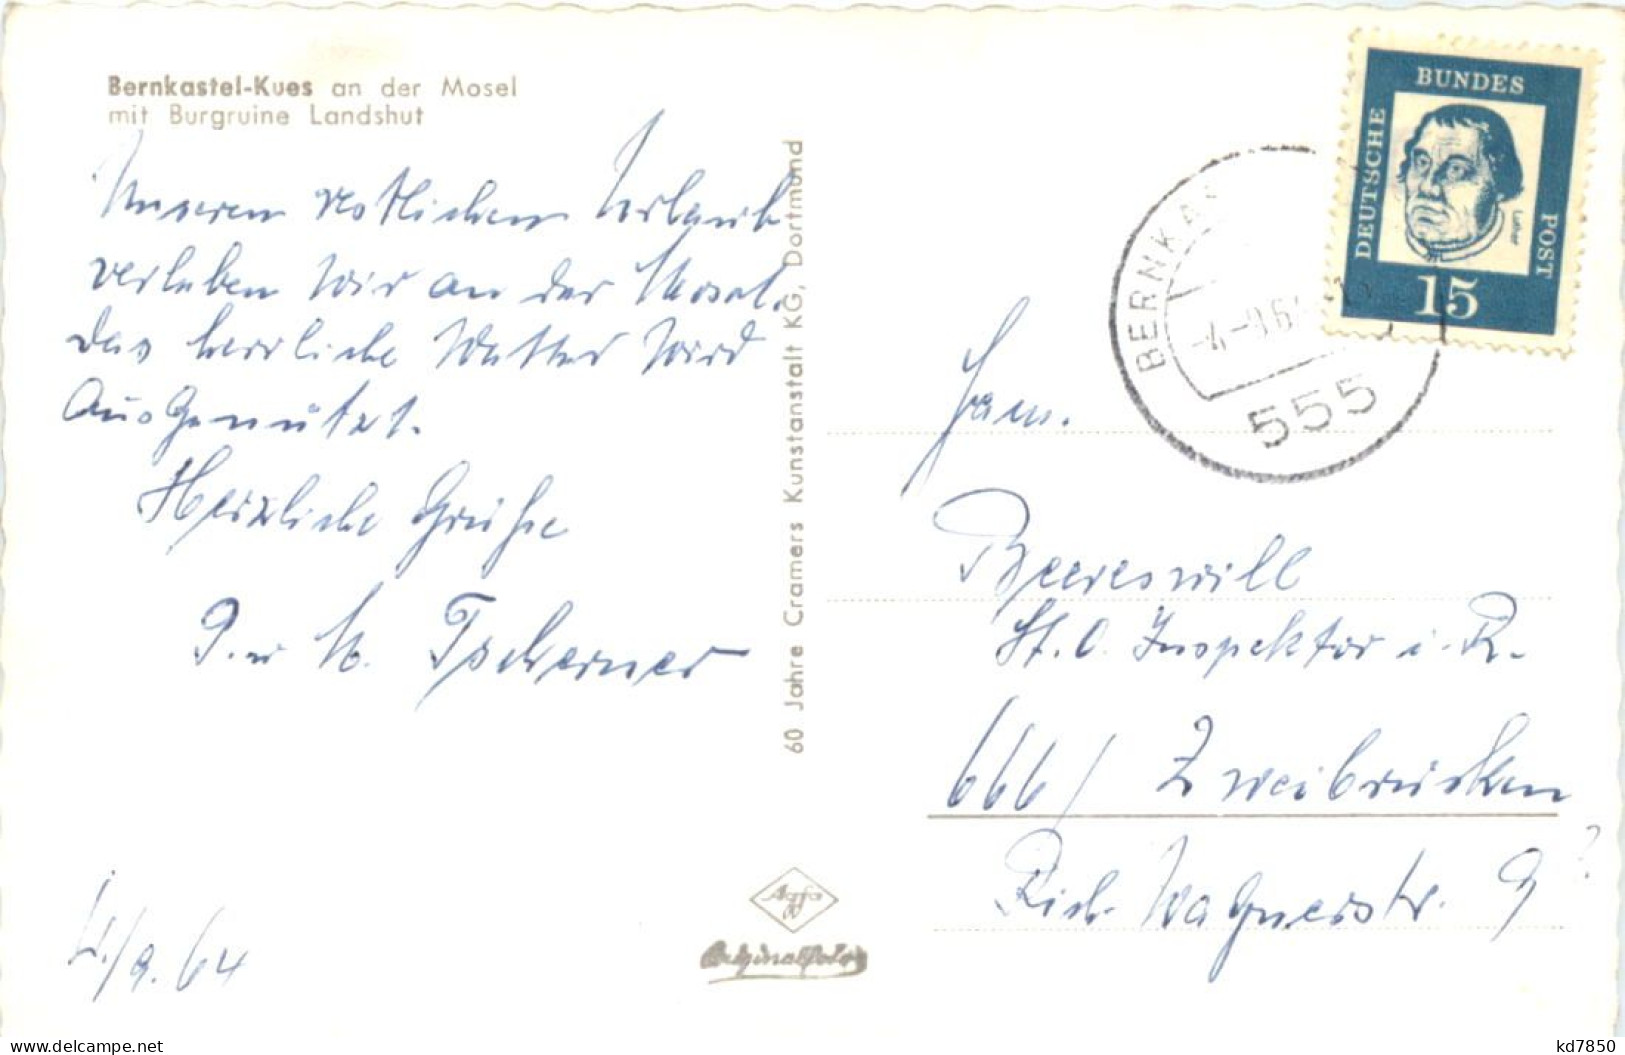 Bernkastel-Kues an der Mosel
mit Burgruine Landshut
Unseren restlichen Urlaub
verleben wir an der Mosel.
Das herrliche Wetter wird
Ausgenützt.
Herzliche Grüße
P. u M. Tscherner
4./9.64
60 Jahre Cramers Kunstanstalt KG, Dortmund
Agfa
Originalfoto
DEUTSCHE
BUNDES
POST
Luther
15
BERNKA
-4.-9.64
555
Fam.
Beereswill
St. O. Inspektor i. R.
666 / Zweibrücken
Rich. Wagnerstr. 9 ?
www.delcampe.net
kd7850